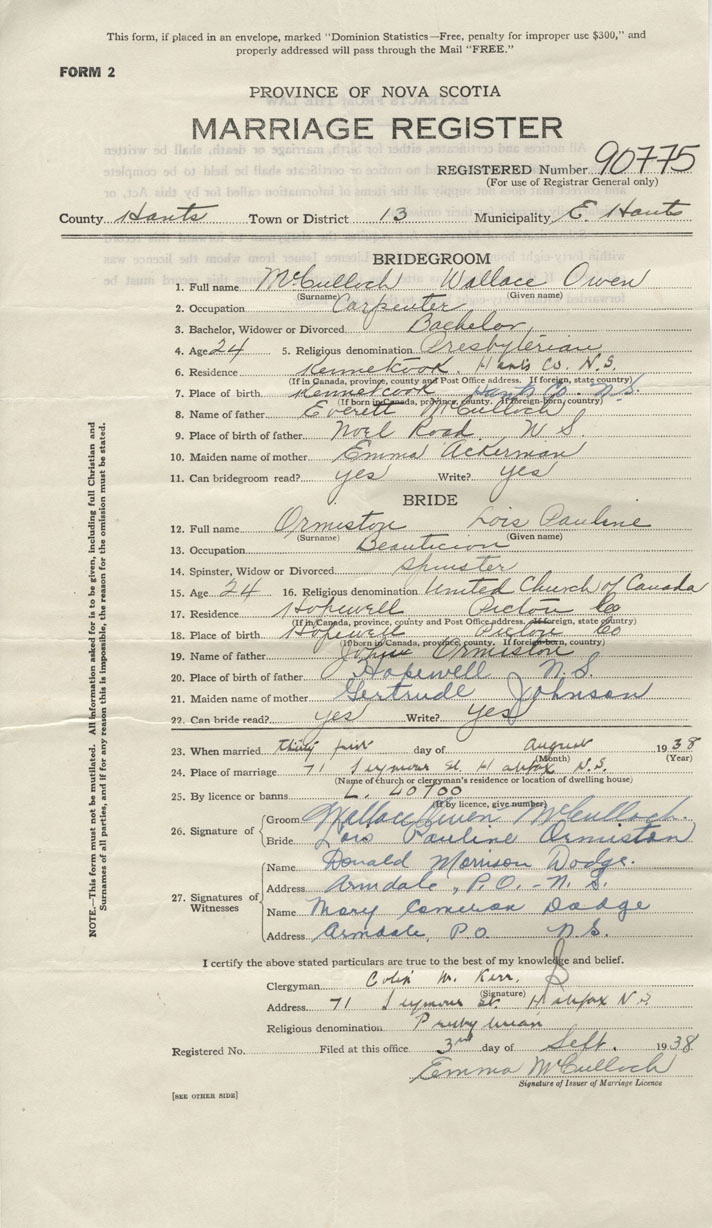 This form, if placed in an envelope, marked "Dominion Statistics—Free, penalty for improper use $300," and
properly addressed will pass through the Mail "FREE."
FORM 2
PROVINCE OF NOVA SCOTIA
MARRIAGE REGISTER
REGISTERED Number 90775
(For use of Registrar General only)
County Hants Town or District 13 Municipality E. Hants
BRIDEGROOM
1. Full name McCulloch Wallace Owen
(Surname) (Given name)
2. Occupation Carpenter
3. Bachelor, Widower or Divorced Bachelor
4. Age 24 5. Religious denomination Presbyterian
6. Residence Kennetcook, Hants Co. N.S.
(If in Canada, province, county and Post Office address. If foreign, state country)
7. Place of birth Kennetcook Hants Co. N.S.
(If born in Canada, province, county. If foreign-born, country)
8. Name of father Everett McCulloch
9. Place of birth of father Noel Road, N S.
10. Maiden name of mother Emma Ackerman
11. Can bridegroom read? yes Write? yes
BRIDE
12. Full name Ormiston Lois Pauline
(Surname) (Given name)
13. Occupation Beautician
14. Spinster, Widow or Divorced Spinster
15. Age 24 16. Religious denomination United Church of Canada
17. Residence Hopewell Pictou Co
(If in Canada, province, county and Post Office address. If foreign, state country)
18. Place of birth Hopewell Pictou Co
(If born in Canada, province, county. If foreign-born, country)
19. Name of father Ormiston
20. Place of birth of father Hopewell N.S.
21. Maiden name of mother Gertrude Johnson
22. Can bride read? yes Write? yes
23. When married thirty first day of August 1938
(Month) (Year)
24. Place of marriage 71 Seymour St. Halifax N.S.
(Name of church or clergyman's residence or location of dwelling house)
25. By licence or banns L. 40700
(If by licence, give number)
26. Signature of
Groom Wallace Owen McCulloch.
Bride Lois Pauline Ormiston
27. Signatures of Witnesses
Name Donald Morrison Dodge.
Address Armdale, P.O. - N. S.
Name Mary Cameron Dodge
Address Armdale, P.O N.S.
I certify the above stated particulars are true to the best of my knowledge and belief.
Clergyman Colin M. Kerr.
(Signature)
Address 71 Seymour St. Halifax N.S.
Religious denomination Presbyterian
Registered No. Filed at this office 3rd day of Sept. 1938
Emma McCulloch
Signature of Issuer of Marriage Licence
[SEE OTHER SIDE]
NOTE.—This form must not be mutilated. All information asked for is to be given, including full Christian and
Surnames of all parties, and if for any reason this is impossible, the reason for the omission must be stated.